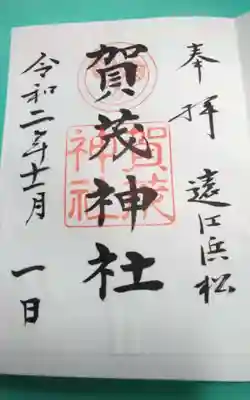 奉拝 遠江浜松
賀茂神社
賀茂
神社
令和二年十一月一日